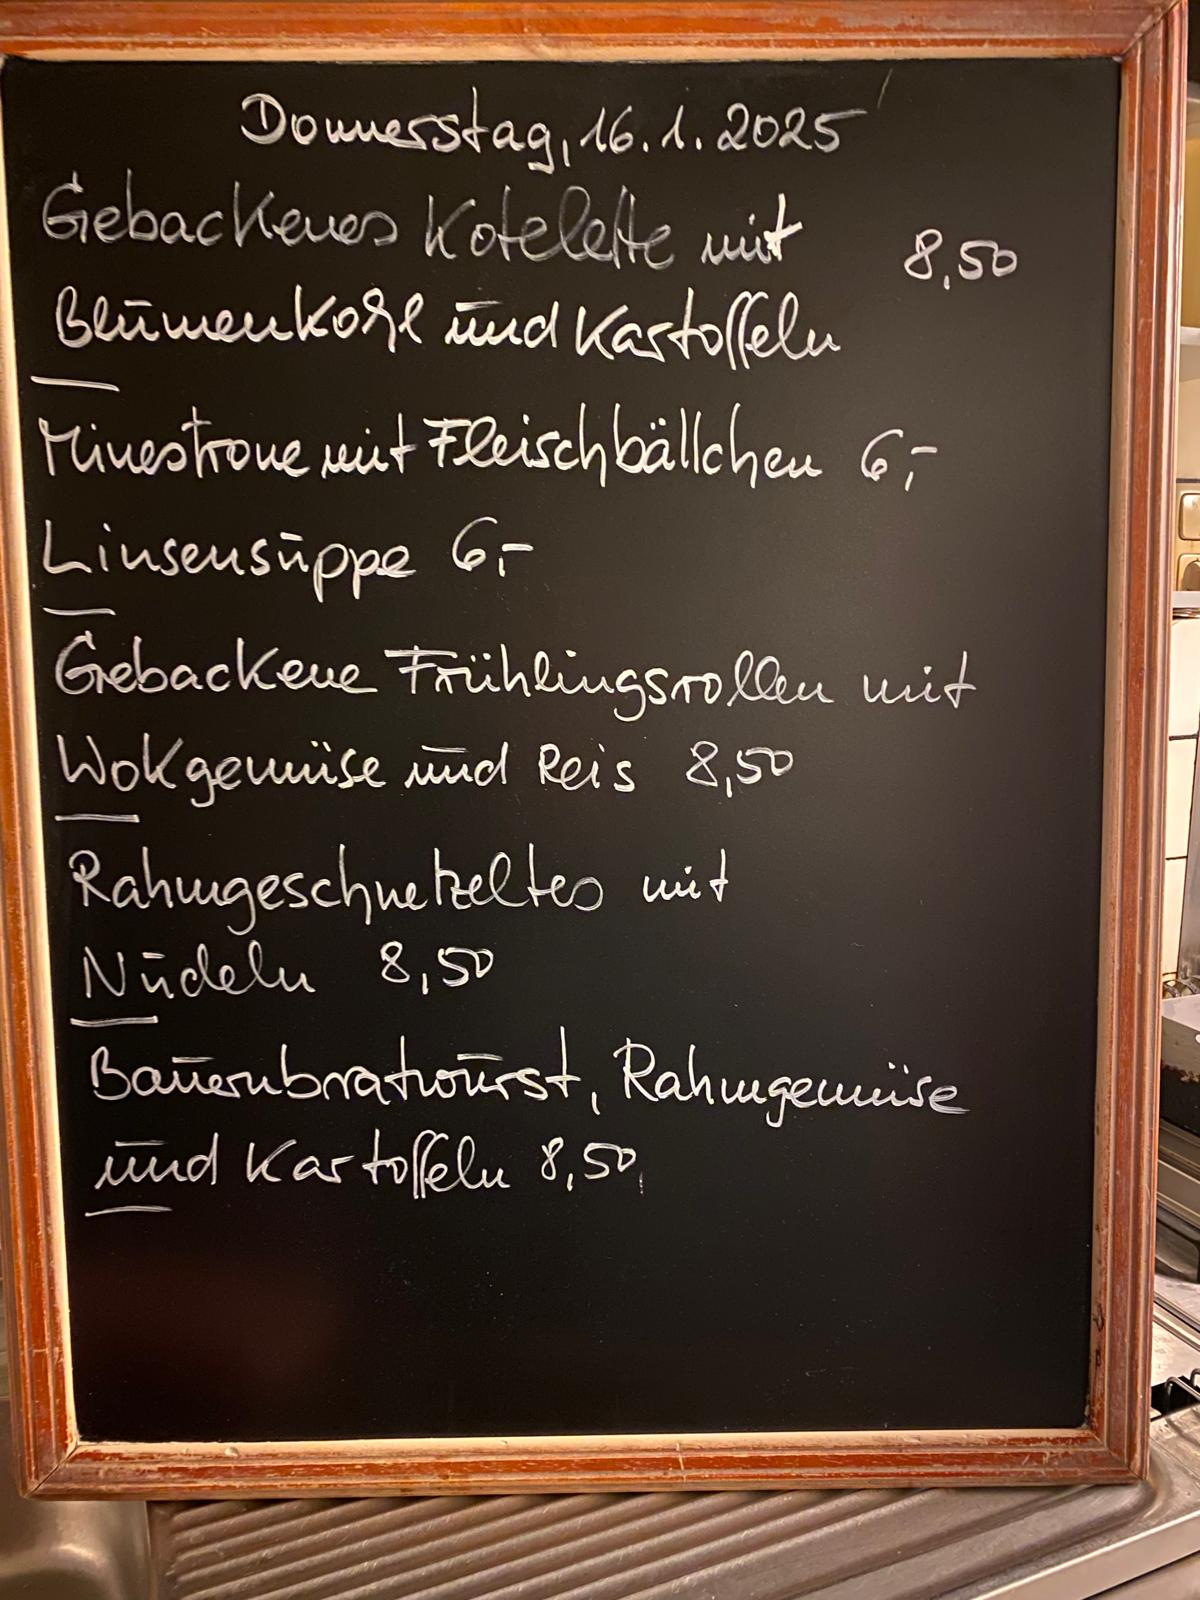 Donnerstag, 16.1.2025
Gebackenes Kotelette mit 8,50
Blumenkohl und Kartoffeln
Minestrone mit Fleischbällchen 6,-
Linsensuppe 6,-
Gebackene Frühlingsrollen mit
Wokgemüse und Reis 8,50
Rahmgeschnetzeltes mit
Nudeln 8,50
Bauernbratwurst, Rahmgemüse
und Kartoffeln 8,50